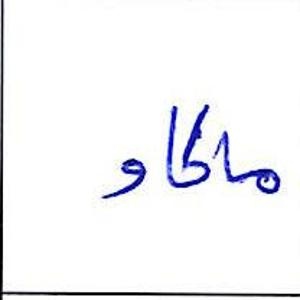 ماكاو